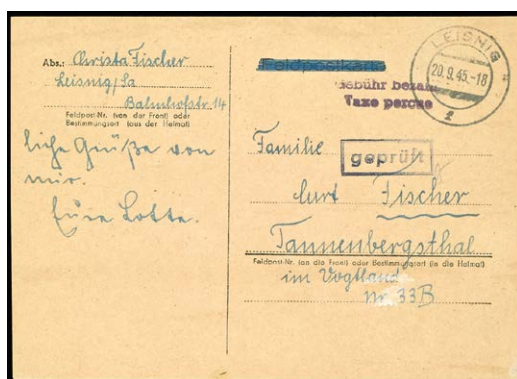 Abs.: Christa Fischer
Leisnig/Sa
Bahnhofstr. 14
Feldpost-Nr. (von der Front) oder
Bestimmungsort (aus der Heimat)
liche Grüße von
mir.
Eure Lotte.
Feldpostkarte
Gebühr bezah
Taxe percue
LEISNIG
20.9.45.-18
f
Familie
geprüft
Curt Fischer
Tannenbergsthal
Feldpost-Nr. (an die Front) oder Bestimmungsort (in die Heimat)
im Vogtland
Nr. 33B